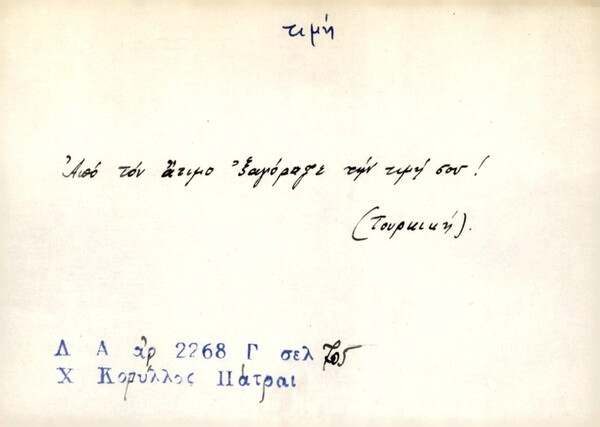 τιμή
Ἀπό τόν ἄτιμο ἐξαγόραζε τήν τιμή σου!
(Τουρκική).
Λ Α ἀρ 2268 Γ σελ
Χ Κορύλλος Πάτραι